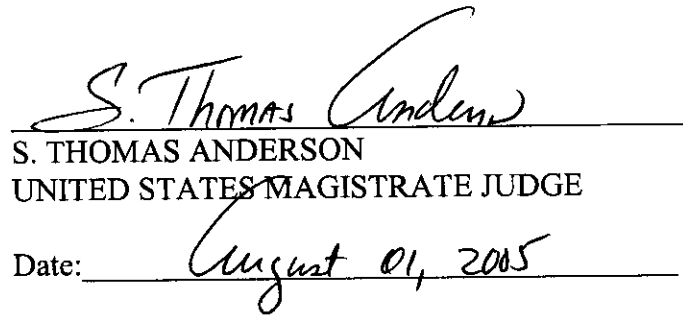 S. Thomas Anderson
S. THOMAS ANDERSON
UNITED STATES MAGISTRATE JUDGE
Date: August 01, 2005